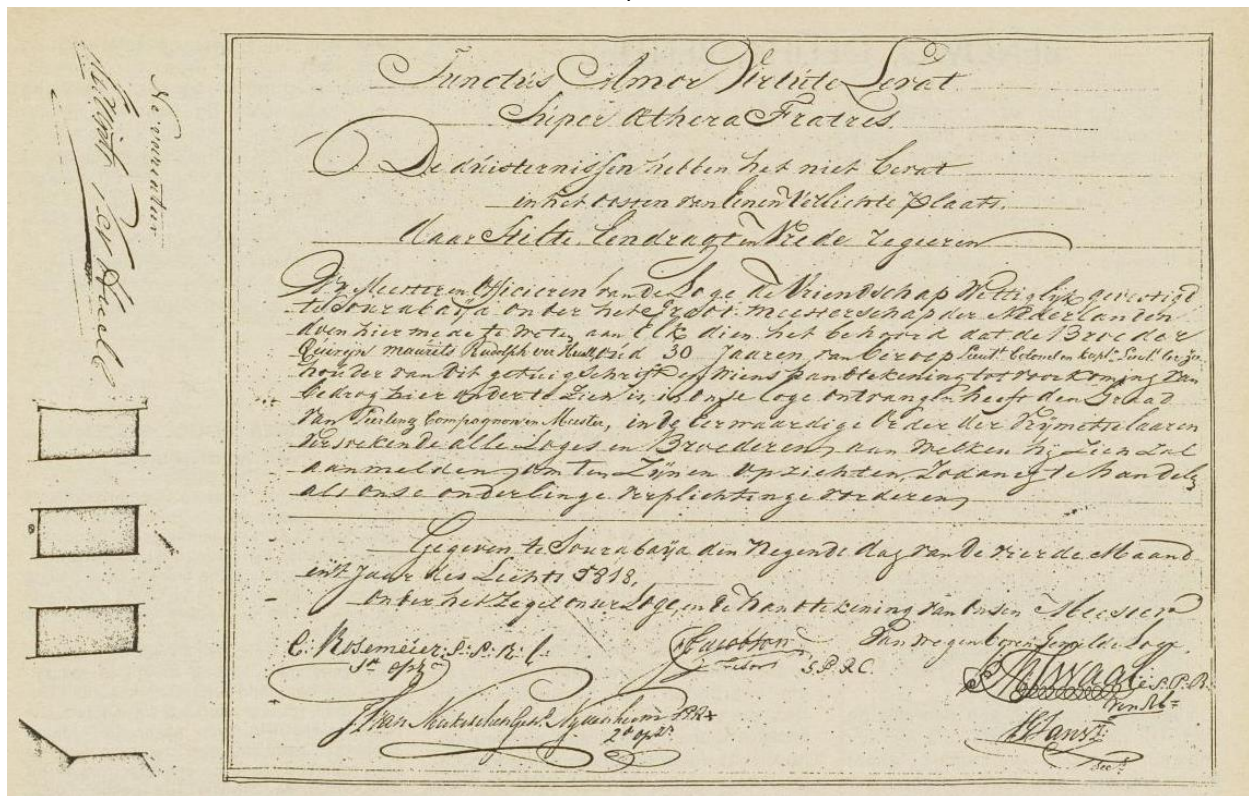 Ne varietur
Junctus Amor Virtute Levat
Super Æthera Fratres
De duisternissen hebben het niet bevat
in het oosten van Eenen Verlichte plaats.
Maar Stilte Eendragt en Vrede regeeren
Wy Meester en Officieren van de Loge de Vriendschap Wettiglyk gevestigd
te Sourabaÿa onder het Groot-meesterschap der Nederlanden
doen hier mede te weten aan Elk dien het behoord dat de Broeder
Quirijn maurits Rudolph ver Huell, oud 30 Jaaren, van beroep Lieut. Colonel en Kapt. Lieut. ter zee
houder van dit getuigschrift en wiens handtekening tot voorkoming van
bedrog hier onder te Zien is, in onse loge ontvangen heeft den Graad
van Leerling Compagnon en Meester, in de Eerwaardige Order der Vrÿmetselaaren
versoekende alle Loges en Broederen, aan welken hÿ Zien Zal
aanmelden, om ten Zÿnen opzichten, Zodanig te handelen
als onse onderlinge verplichtinge vorderen,
Gegeven te Sourabaÿa den Negende dag van de vierde Maand
in't Jaar des Lichts 5818,
Onder het Zegel onser Loge, en de handtekening van onsen Meester
C: Rosemeier S: P: R: C:
1e opzr
Jacobson S.P.R.C.
Van wegen bovengemelde Loge,
S: P: R:
J Van Nyvenheim P.R+
2de opzr
Secr: